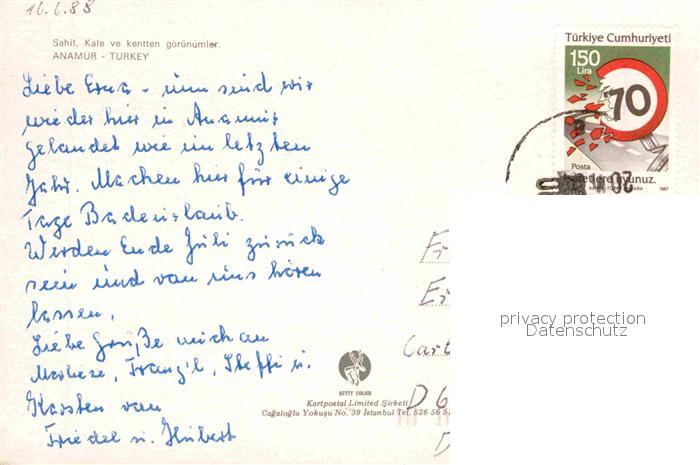 16.6.88
Sahil, Kale ve kentten görünümler.
ANAMUR - TURKEY
Liebe Erna - nun sind wir
wieder hier in Anamur
gelandet wie im letzten
Jahr. Machen hier für einige
Tage Badeurlaub.
Werden Ende Juli zurück
sein und von uns hören
lassen.
Liebe Grüße auch an
Marliese, Franz'l, Steffi u.
Karsten von
Friedel u. Hubert
Türkiye Cumhuriyeti
150
Lira
70
Posta
uyunuz.
1987
privacy protection
Datenschutz
Fr
Er
Cart
D 6
D
HITIT COLOR
Kartpostal Limited Şirketi
Cağaloğlu Yokuşu No. 39 İstanbul Tel. 526 56 5